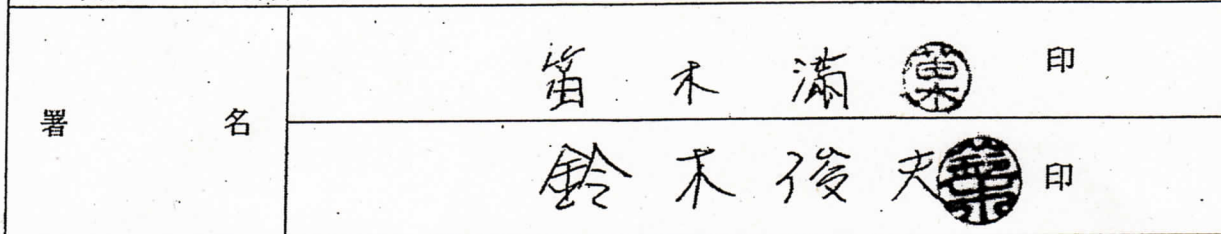 署名
笛木満 印
鈴木俊夫 印